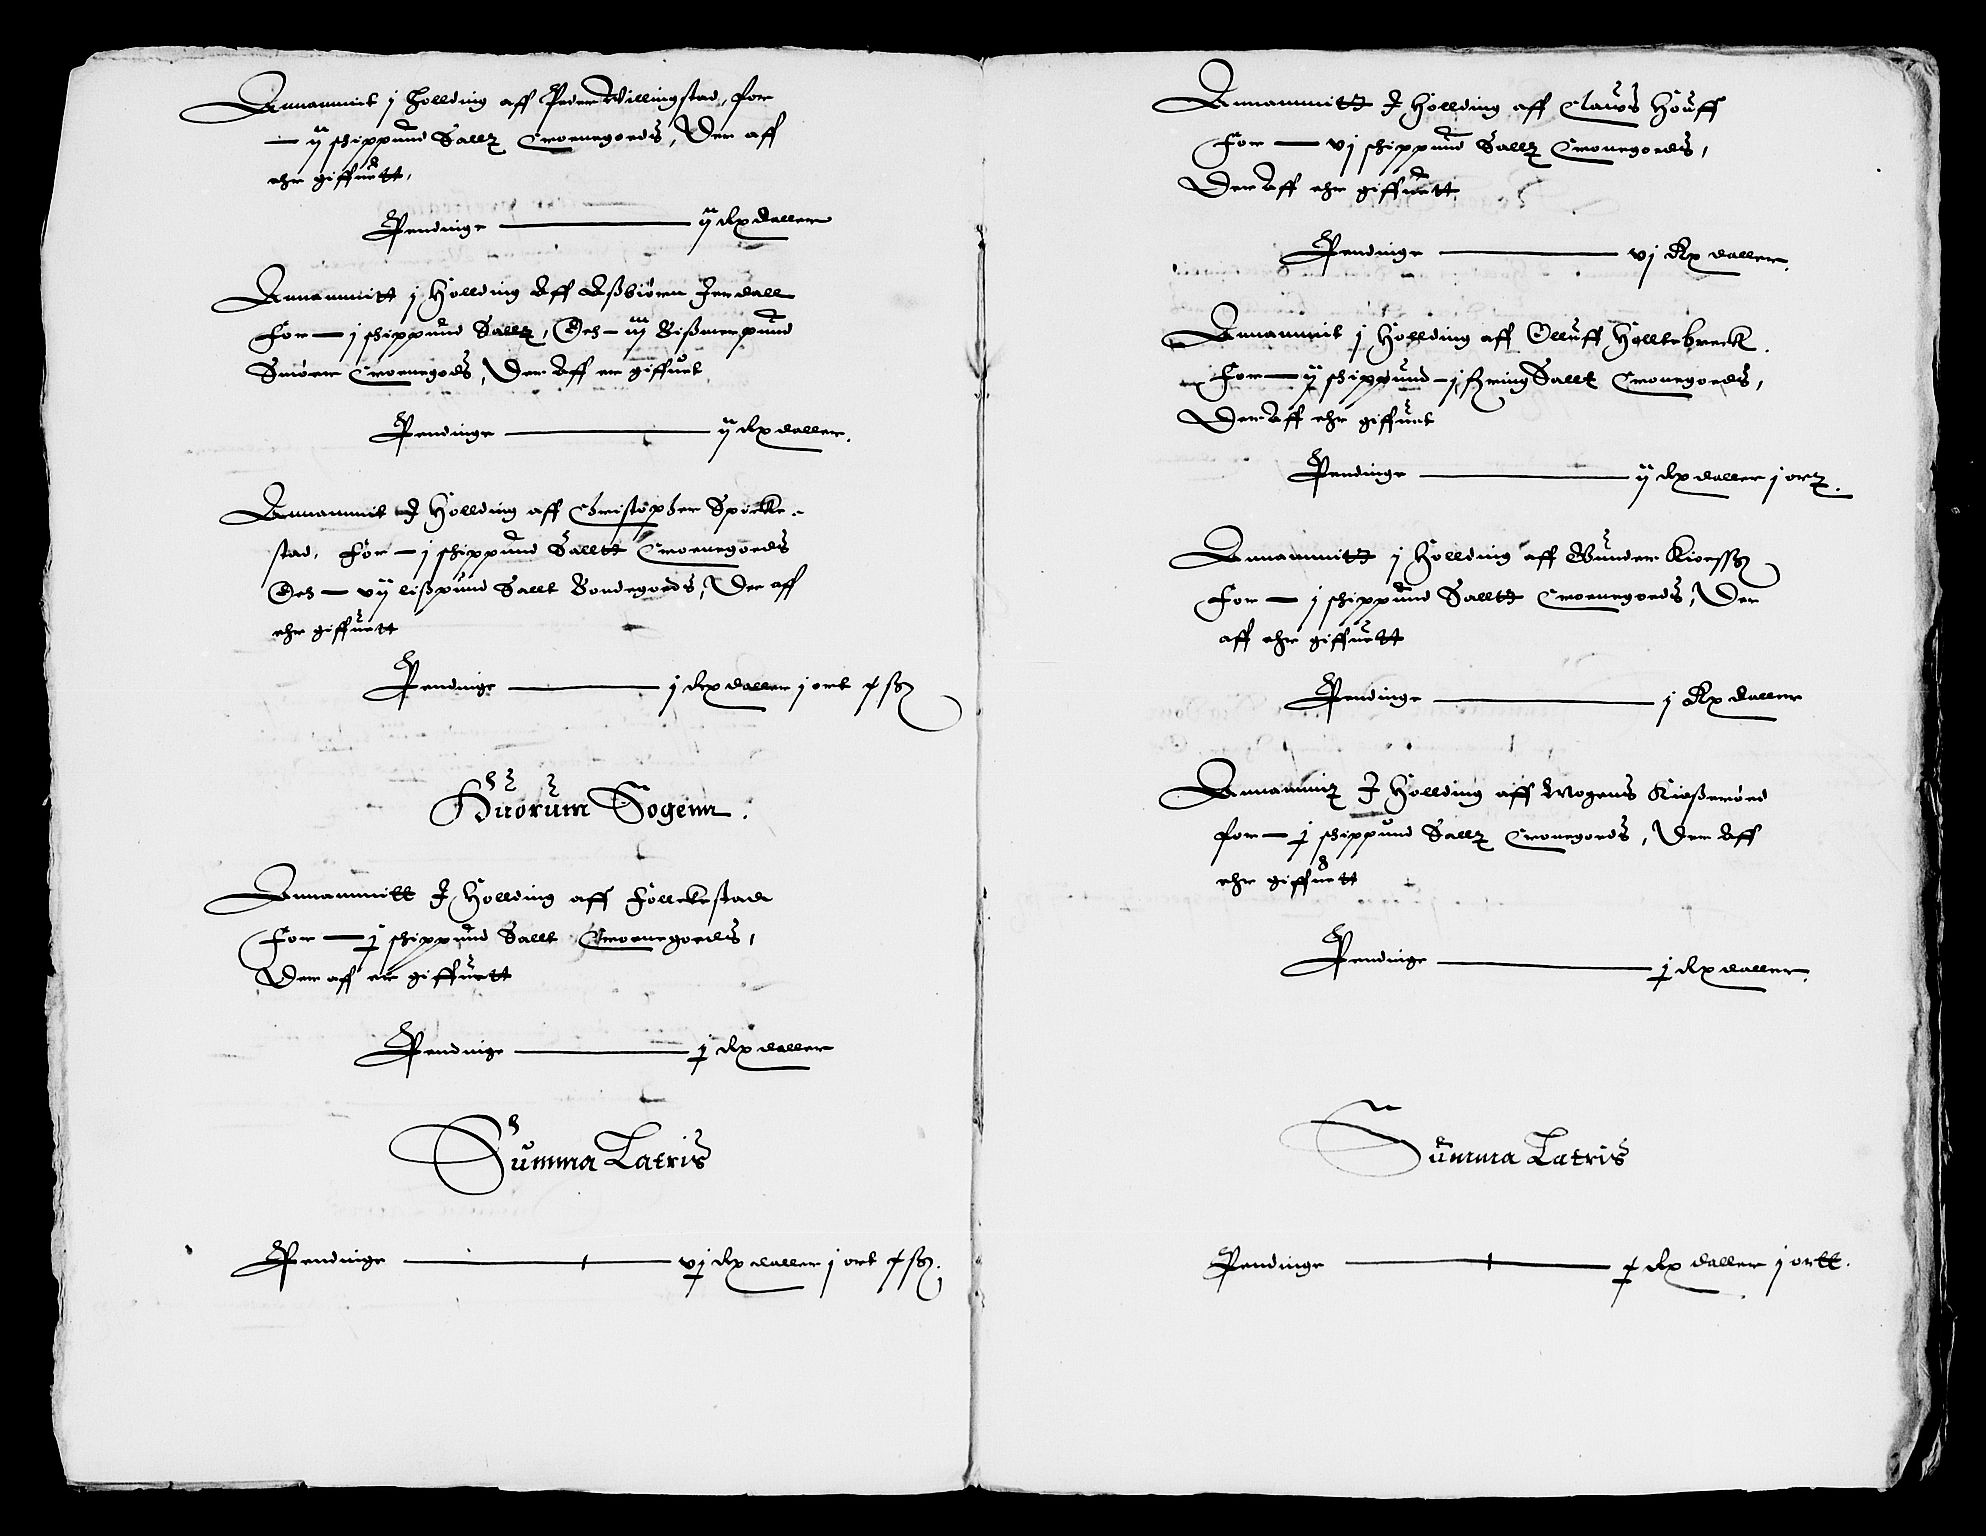 Annammit j Holding aff Peder Willingstad, for
— ij schippund Sallt Croenegoeds, Der aff
ehr giffuett,
Pendinge — ij Rx daller
Annammitt j Hollding Aff Aßbiören Jerdall
For — j schippund Sallt, Och — iij Bißmerpund
Smöer Croenegods, Der Aff er giffuet
Pendinge — ij Rx daller.
Annammit J Hollding aff Christopher Spocke-
stad, For — j schippund Salltt Croenegoeds
Och — vij lißpund Sallt Bondegoeds, Der aff
ehr giffuett
Pendinge — j Rx daller j ort 4 ß
Huorum Sogenn.
Annammitt J Hollding aff Follekestade
For — j schippund Sallt Croenegoeds,
Der aff er giffuett
Pendinge — j Rx daller
Summa Latris
Pendinge — vj Rx daller j ort 4 ß.
Annammitt J Hollding aff Clawes Houff
For — vj schippund Sallt Cronegoeds,
Der Aff ehr giffuett
Pendinge — vj Rx daller.
Annammit j Hollding aff Olluff Holltebreck.
For — ij schippund — j fyring Sallt Cronegoeds,
Der Aff ehr giffuet
Pendinge — ij Rx daller j ort.
Annammitt j Hollding aff Gunder
For — j schippund Salltt Croenegoeds, Der
aff ehr giffuett
Pendinge — j Rx daller
Annammit J Hollding aff Mogens Kießeröed
for — j schippund Sallt Cronegoeds, Der Aff
ehr giffuett
Pendinge — j Rx daller.
Summa Latris
Pendinge — Rx daller j ortt.